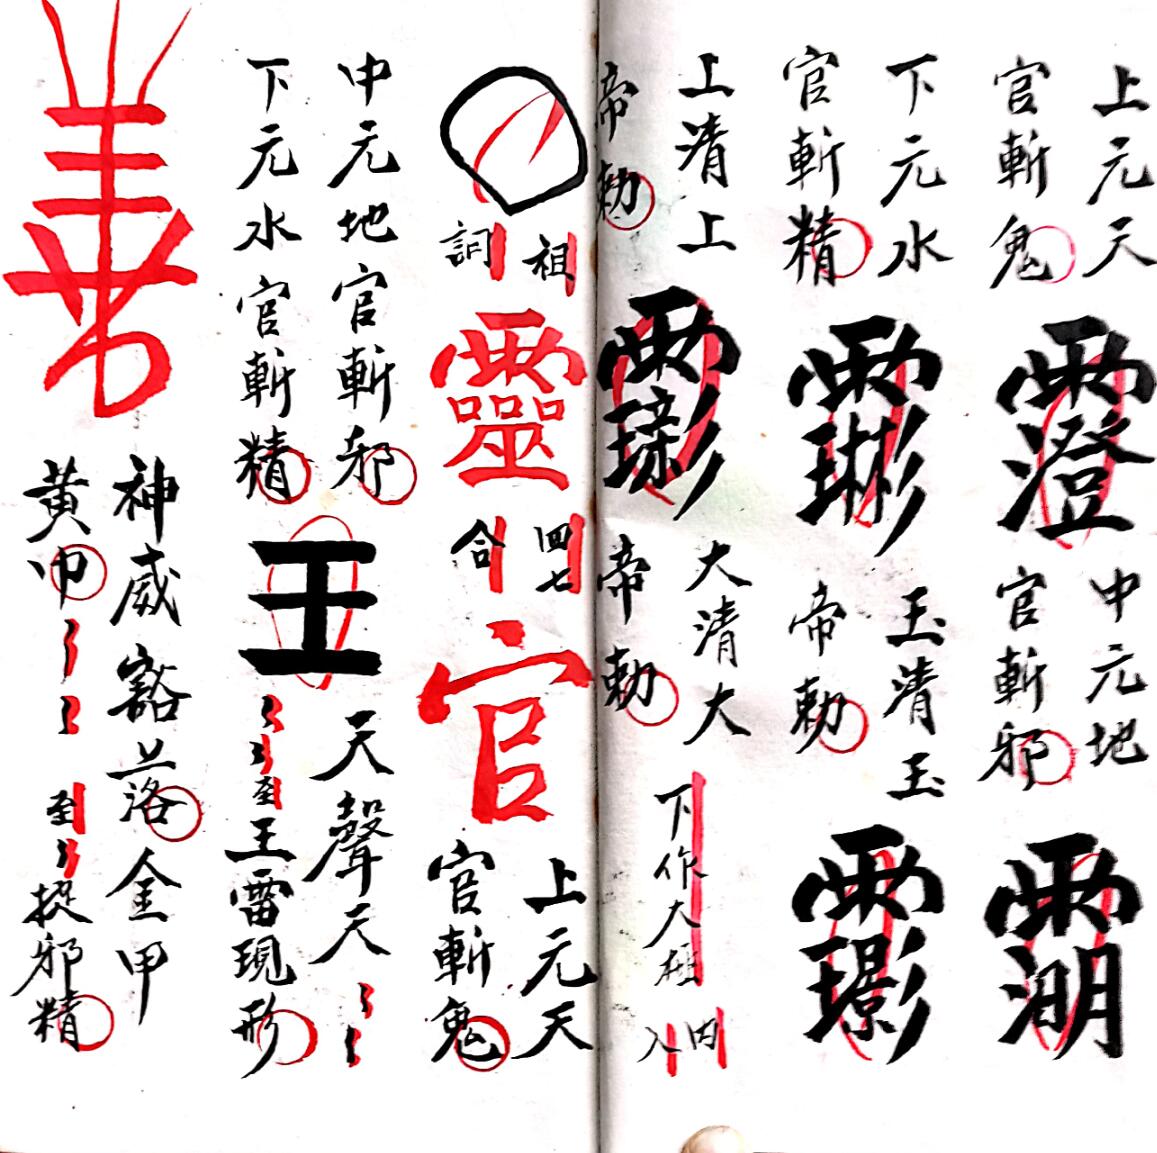 上元天
官斬鬼
中元地
官斬邪
下元水
官斬精
玉清玉
帝勅
上清上
帝勅
大清大
帝勅
下作大
內
入
祖
詞
靈
四七
合
官
上元天
官斬鬼
中元地官斬邪
下元水官斬精
王
天聲天
至王雷現形
神威豁落金甲
黃巾
至
捉邪精